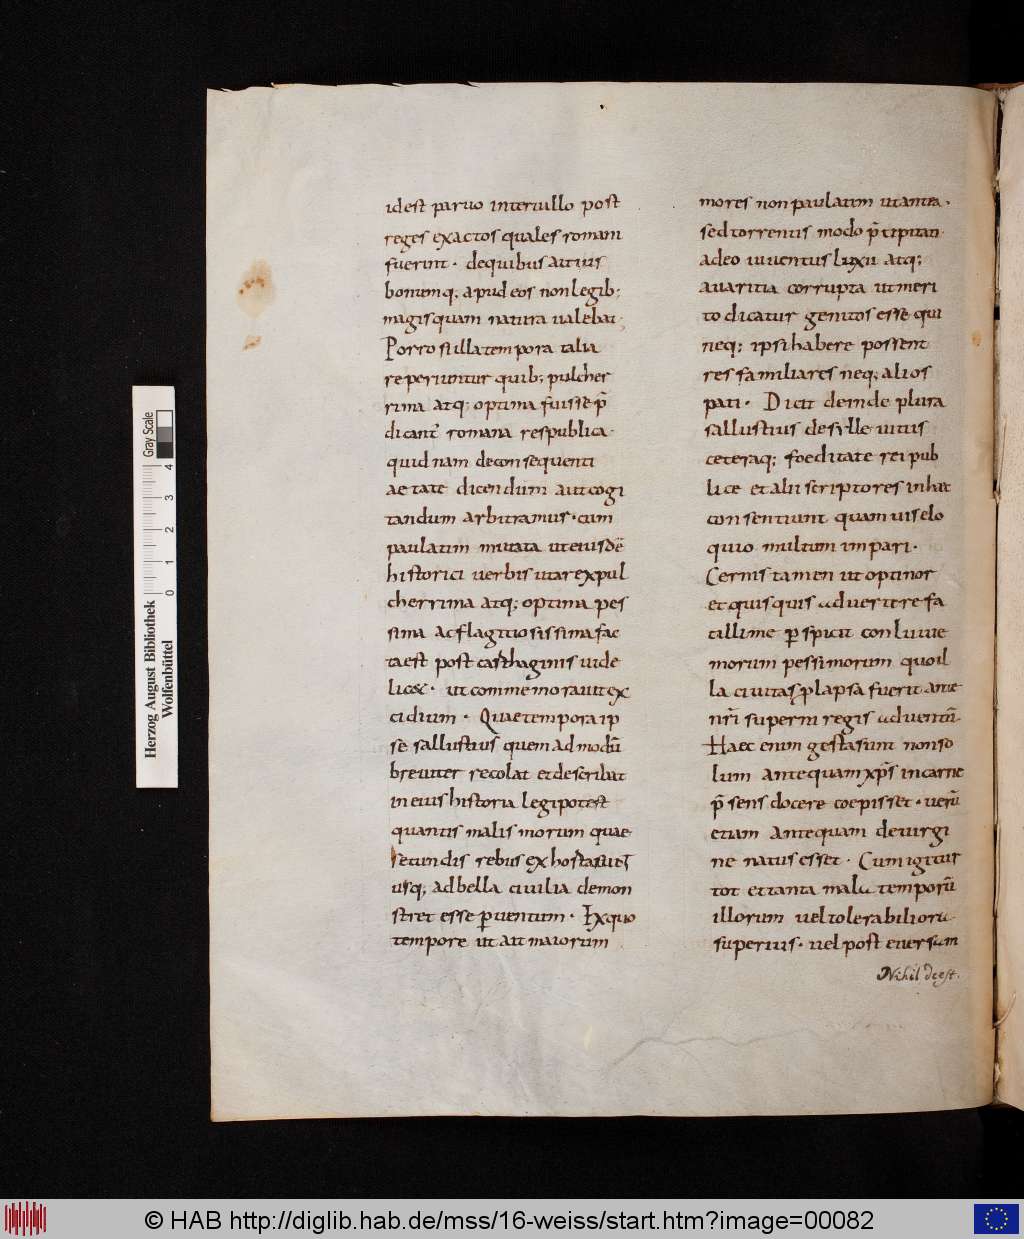 idest paruo interuallo post
reges exactos quales romani
fuerint · dequibus aitius
bonumq; apud eos non legib;
magis quam natura ualebat;
Porro si illa tempora talia
reperiuntur quib; pulcher
rima atq; optima fuisse p̄
dicant̄ romana respublica·
quid nam deconsequenti
aetate dicendum aut cogi
tandum arbitramur· cum
paulatim mutata ut eiusdē
historici uerbis utar expul
cherrima atq; optima pes
sima ac flagitiosissima fac
ta est post carthaginis uide
lic& · ut commemorauit ex
cidium · Quae tempora ip
se sallustius quem ad modū
breuiter recolat et describat
in eius historia legi potest
quantis malis morum quae
secundis rebus exhorta
usq; ad bella ciuilia demon
stret esse ꝑuentum · Ex quo
tempore ut ait maiorum
mores non paulatim ut antea·
sed torrentis modo p̄cipitati·
adeo iuuentus luxu atq;
auaritia corrupta ut meri
to dicatur genitos esse qui
neq; ipsi habere possent
res familiares neq; alios
pati · Dicit deinde plura
sallustius de sylle uitiis
ceteraq; foeditate rei pub
lice et alii scriptores in hac
consentiunt quamuis elo
quio multum impari ·
Cernis tamen ut opinor
et quisquis aduertere fa
cillime ꝑspicit conluuie
morum pessimorum quo il
la ciuitas ꝓlapsa fuerit ante
nr̄i superni regis aduentū·
Haec enim gesta sunt non so
lum antequam xp̄s in carne
p̄sens docere coepisset · uerū
etiam antequam deuirgi
ne natus esset · Cum igitur
tot et tanta mala temporū
illorum uel tolerabiliora
superius · uel post euersam
Nihil deest.
Herzog August Bibliothek
Wolfenbüttel
0 1 2 3 4
Gray Scale
© HAB http://diglib.hab.de/mss/16-weiss/start.htm?image=00082